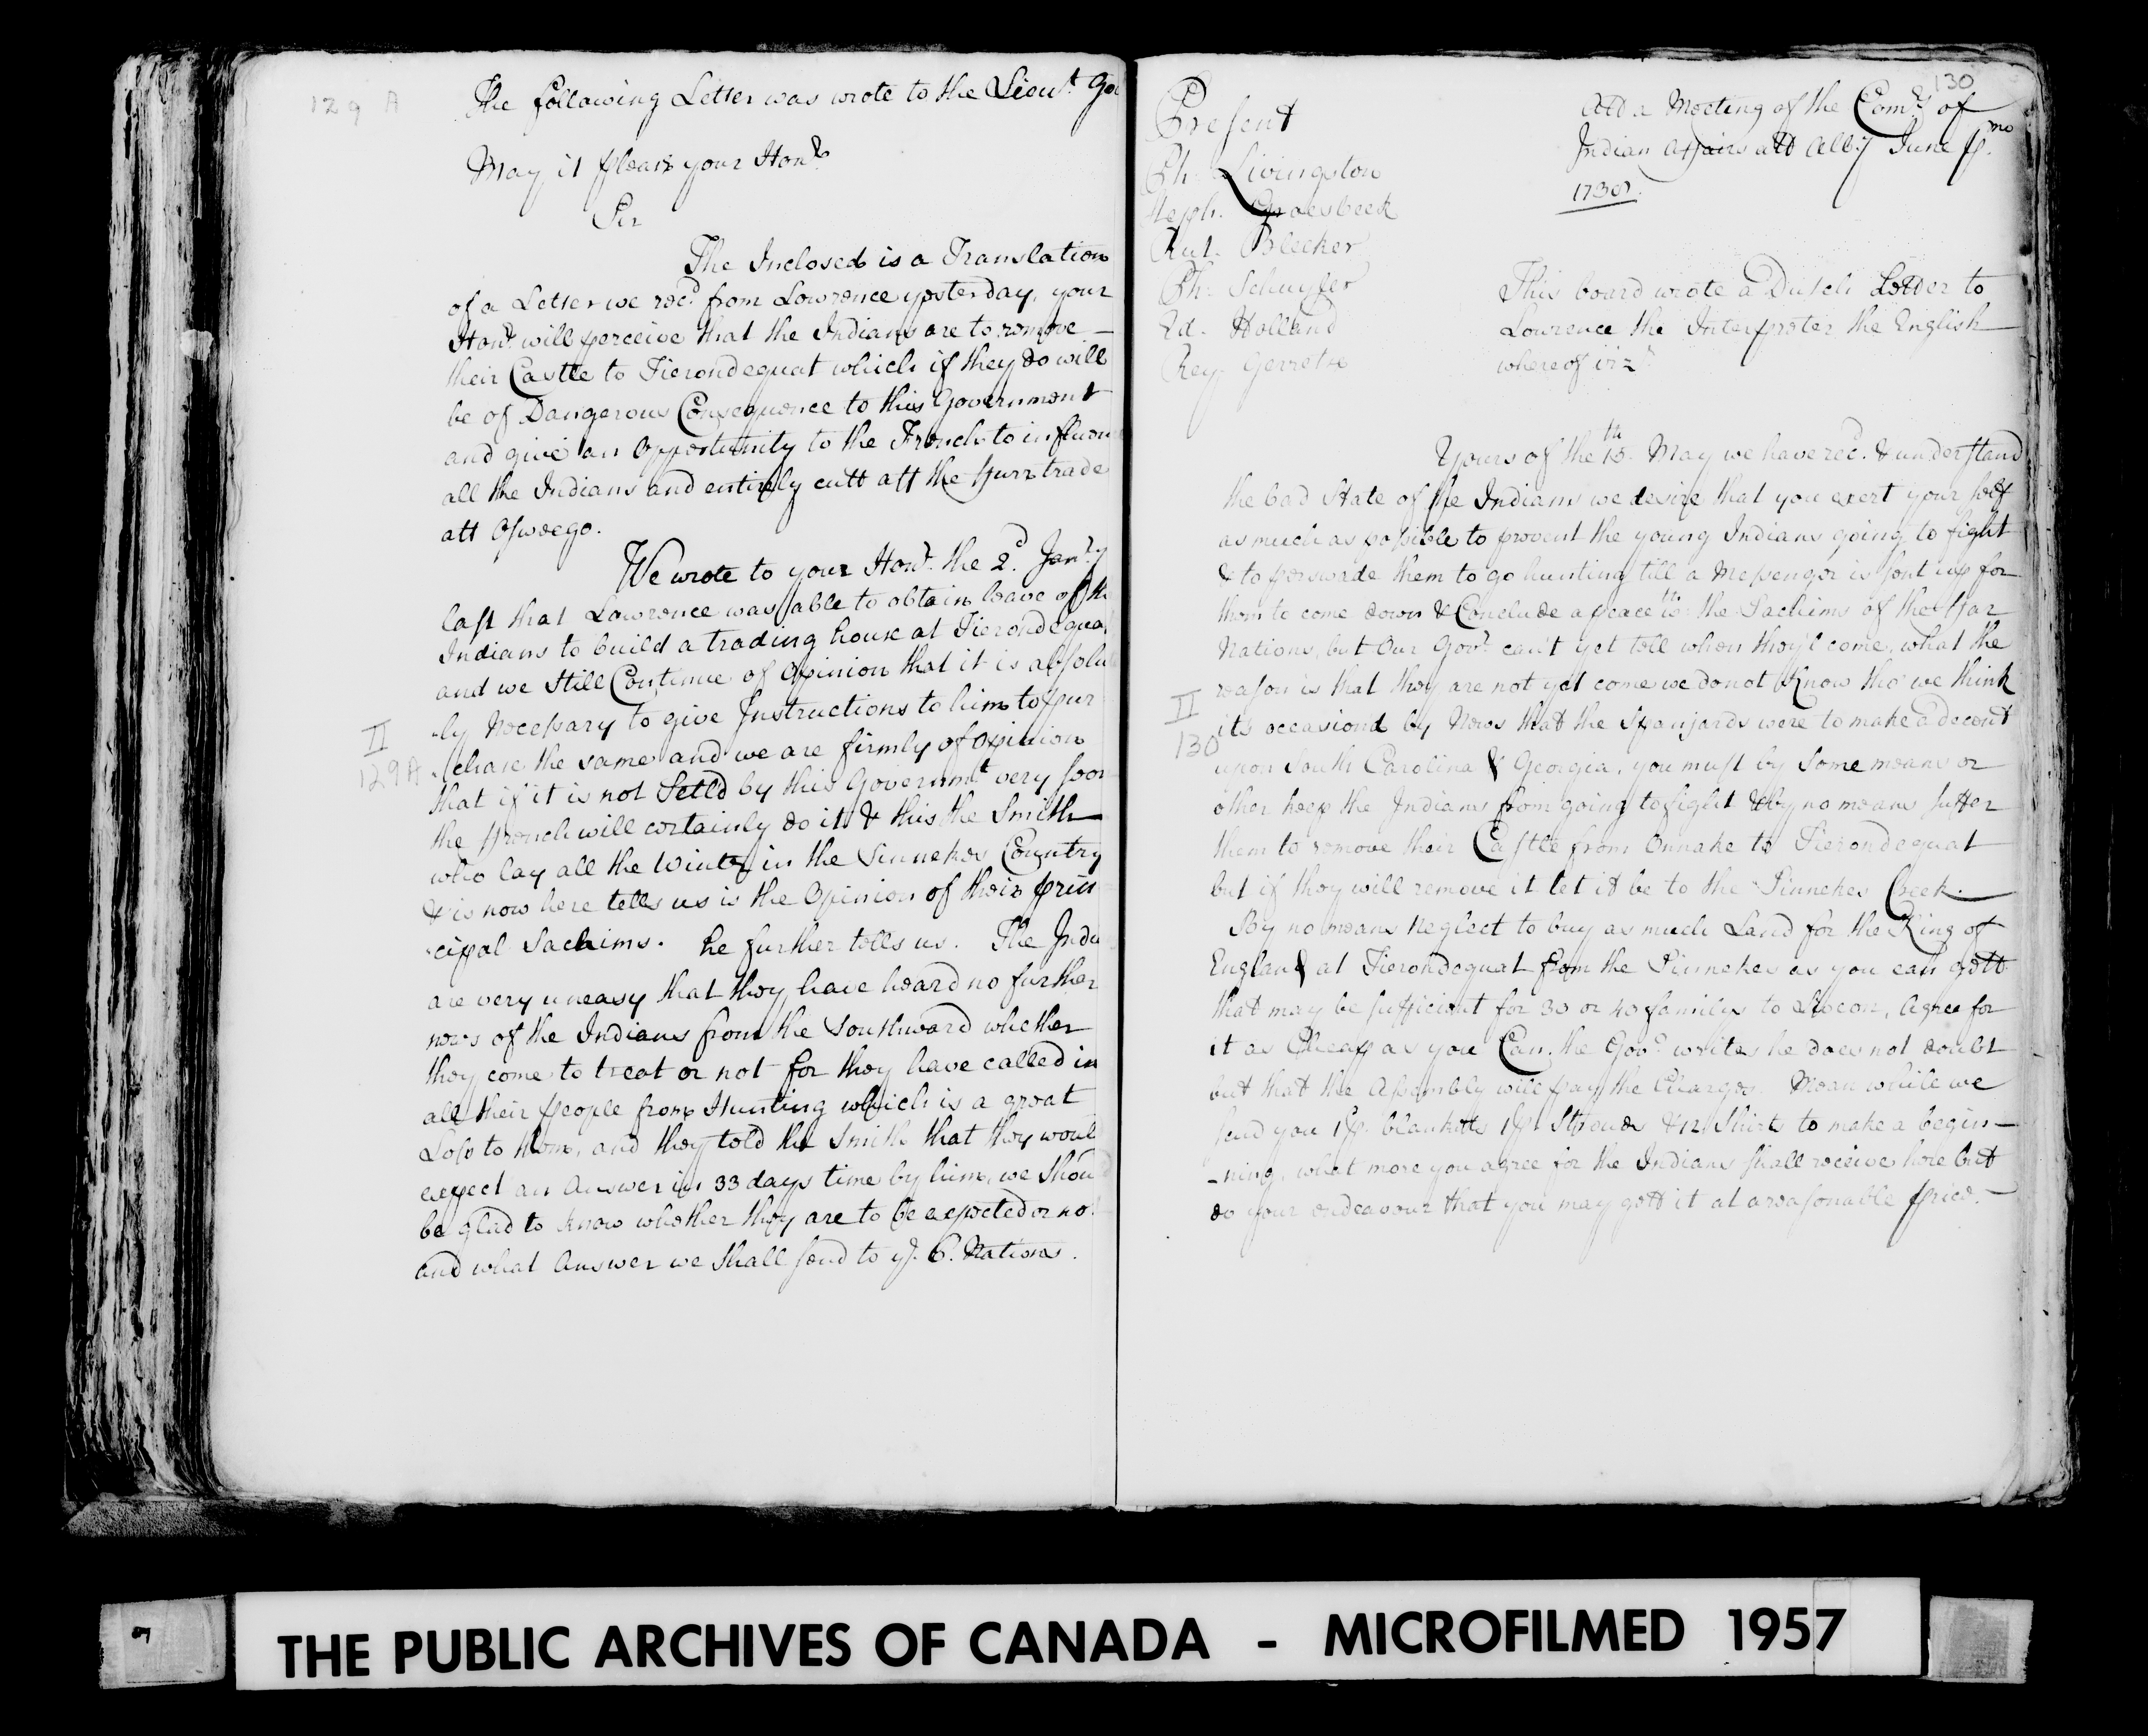 129 A
The following Letter was wrote to the Lieut. Gov
May it please your Honr.
Sir
The Inclosed is a Translation
of a Letter we recd. from Lowrence yesterday, your
Honr. will perceive that the Indians are to remove
their Castle to Tierondequat which if they do will
be of Dangerous Consequence to this Government
and give an Opportunity to the French to influen
all the Indians and entirely cutt off the furr trade
att Oswego.
We wrote to your Honr. the 2d. Janry
last that Lawrence was able to obtain leave of th
Indians to build a trading house at Tierondequa
and we still Continue of Opinion that it is absolu
-ly Necessary to give Instructions to him to pur
II
129A
-chase the same and we are firmly of opinion
that if it is not Setld by this Governmt very soon
the french will certainly do it & this the Smith
who lay all the Winter in the Sinnekes Country
& is now here tells us is the Opinion of their prin
-cipal Sachims. he further tells us. The Indi
are very uneasy that they have heard no further
news of the Indians from the Southward whether
they come to treat or not for they have called in
all their people from Hunting which is a great
Loss to them, and they told the Smith that they woul
expect an Answer in 33 days time by him, we shou
be glad to know whether they are to be expected or no
and what Answer we shall send to ye. 6. Nations.
130
Present
Ph. Livingston
Steph. Groesbeek
Rut. Bleeker
Ph. Schuyler
Ed. Holland
Rey. Gerretse
Att a Meeting of the Comrs. of
Indian Affairs att Alby June pmo
1738.
This board wrote a Dutch Letter to
Lowrence the Interpreter the English
whereof vizt
Yours of the 15th. May we have recd. & understand
the bad State of the Indians we desire that you exert your self
as much as possible to prevent the young Indians going to fight
& to perswade them to go hunting till a Messenger is sent up for
them to come down & Conclude a peace wth. the Sachims of the far
Nations, but Our Govr. can't yet tell when they'l come, what the
reason is that they are not yet come we do not Know tho' we think
II
130
it's occasiond by News that the Spanjards were to make a decent
upon South Carolina & Georgia, you must by some means or
other keep the Indians from going to fight & by no means suffer
them to remove their Castle from Onnahe to Tierondequat
but if they will remove it let it be to the Sinnekes Creek.
By no means Neglect to buy as much Land for the King of
England at Tierondequat from the Sinnekes as you can gett
that may be sufficient for 30 or 40 familys to live on, Agree for
it as Cheap as you Can, the Govr. writes he does not doubt
but that the Assembly will pay the Charges. Mean while we
send you 1 p. blankets 1 p. Strouds & 12 Shirts to make a begin-
-ning, what more you agree for the Indians shall receive here but
do your endeavour that you may gett it at a reasonable price.
THE PUBLIC ARCHIVES OF CANADA - MICROFILMED 1957